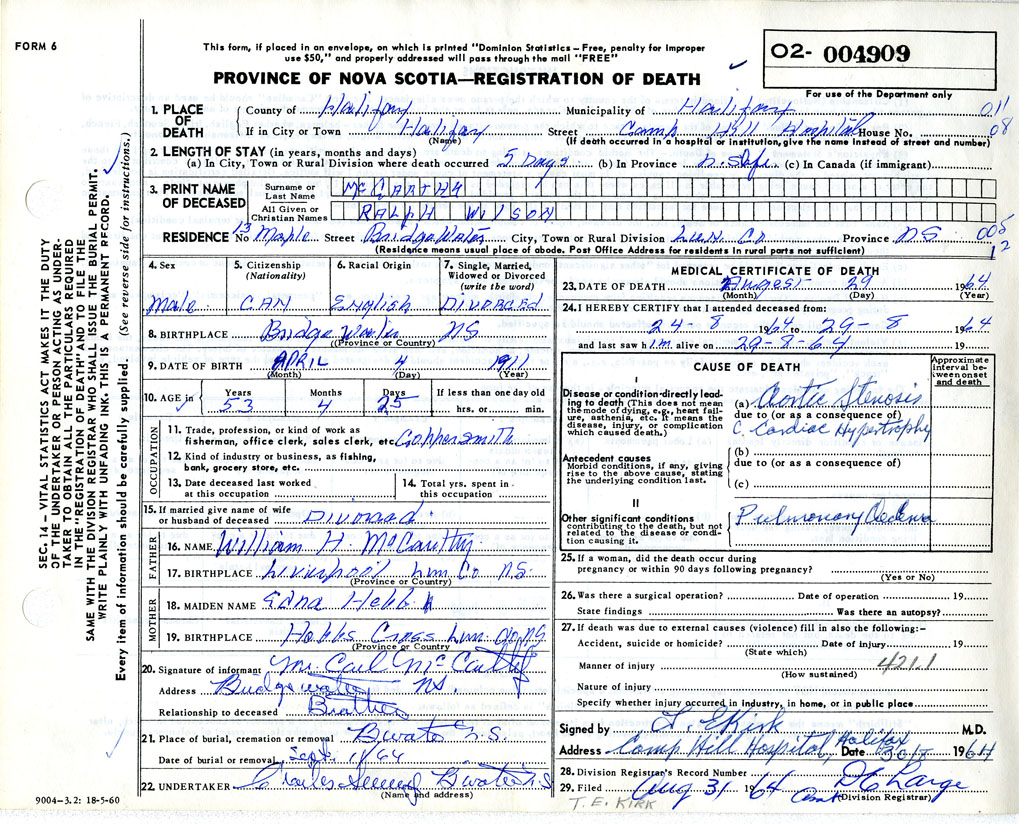 FORM 6
This form, if placed in an envelope, on which is printed "Dominion Statistics – Free, penalty for improper
use $50," and properly addressed will pass through the mail "FREE"
PROVINCE OF NOVA SCOTIA—REGISTRATION OF DEATH
02- 004909
For use of the Department only
1. PLACE OF DEATH County of Halifax Municipality of Halifax 011
If in City or Town Halifax Street Camp Hill Hospital House No. 08
(Name) (If death occurred in a hospital or institution, give the name instead of street and number)
2. LENGTH OF STAY (in years, months and days)
(a) In City, Town or Rural Division where death occurred 5 Days (b) In Province (c) In Canada (if immigrant)
3. PRINT NAME OF DECEASED Surname or Last Name McCARTHY
All Given or Christian Names RALPH WILSON
RESIDENCE No 13 Maple Street BridgeWater City, Town or Rural Division Lun. Co Province NS 005
(Residence means usual place of abode. Post Office Address for residents in rural parts not sufficient) 12
4. Sex 5. Citizenship (Nationality) 6. Racial Origin 7. Single, Married, Widowed or Divorced (write the word)
Male CAN English Divorced
8. BIRTHPLACE BridgeWater NS
(Province or Country)
9. DATE OF BIRTH APRIL 4 1911
(Month) (Day) (Year)
10. AGE in Years Months Days If less than one day old
53 4 25 hrs. or min.
OCCUPATION
11. Trade, profession, or kind of work as
fisherman, office clerk, sales clerk, etc. Coppersmith
12. Kind of industry or business, as fishing,
bank, grocery store, etc.
13. Date deceased last worked at this occupation
14. Total yrs. spent in this occupation
15. If married give name of wife
or husband of deceased Divorced
FATHER
16. NAME William H. McCarthy
17. BIRTHPLACE Liverpool Lun Co N.S.
(Province or Country)
MOTHER
18. MAIDEN NAME Edna Hebb
19. BIRTHPLACE Hebbs Cross Lun. Co NS
(Province or Country
20. Signature of informant Mr. Carl McCarthy
Address Bridgewater NS.
Relationship to deceased Brother
21. Place of burial, cremation or removal B'water N.S.
Date of burial or removal Sept. 1/64
22. UNDERTAKER Charles B'water N.S
(Name and address)
9004–3.2: 18-5-60
MEDICAL CERTIFICATE OF DEATH
23. DATE OF DEATH August 29 1964
(Month) (Day) (Year)
24. I HEREBY CERTIFY that I attended deceased from:
24-8 1964 to 29-8 1964
and last saw him alive on 29-8-64 19
CAUSE OF DEATH
Approximate interval between onset and death
I
Disease or condition directly leading to death (This does not mean the mode of dying, e.g., heart failure, asthenia, etc. It means the disease, injury, or complication which caused death.)
(a) Aortic Stenosis
due to or as a consequence of)
C. Cardiac Hypertrophy
Antecedent causes
Morbid conditions, if any, giving rise to the above cause, stating the underlying condition last.
(b)
due to (or as a consequence of)
(c)
II
Other significant conditions contributing to the death, but not related to the disease or condition causing it.
Pulmonary Oedema
25. If a woman, did the death occur during
pregnancy or within 90 days following pregnancy?
(Yes or No)
26. Was there a surgical operation? Date of operation 19
State findings Was there an autopsy?
27. If death was due to external causes (violence) fill in also the following:–
Accident, suicide or homicide? Date of injury 19
(State which)
Manner of injury 421.1
(How sustained)
Nature of injury
Specify whether injury occurred in industry, in home, or in public place
Signed by L. E Kirk M.D.
Address Camp Hill Hospital, Halifax Date 1964
28. Division Registrar's Record Number
29. Filed Aug 31 1964 D C Large
(Division Registrar)
T. E. KIRK
SEC. 14 – VITAL STATISTICS ACT MAKES IT THE DUTY
OF THE UNDERTAKER OR PERSON ACTING AS UNDER-
TAKER TO OBTAIN ALL THE PARTICULARS REQUIRED
IN THE "REGISTRATION OF DEATH" AND TO FILE THE
SAME WITH THE DIVISION REGISTRAR WHO SHALL ISSUE THE BURIAL PERMIT.
WRITE PLAINLY WITH UNFADING INK. THIS IS A PERMANENT RECORD.
Every item of information should be carefully supplied. (See reverse side for instructions.)